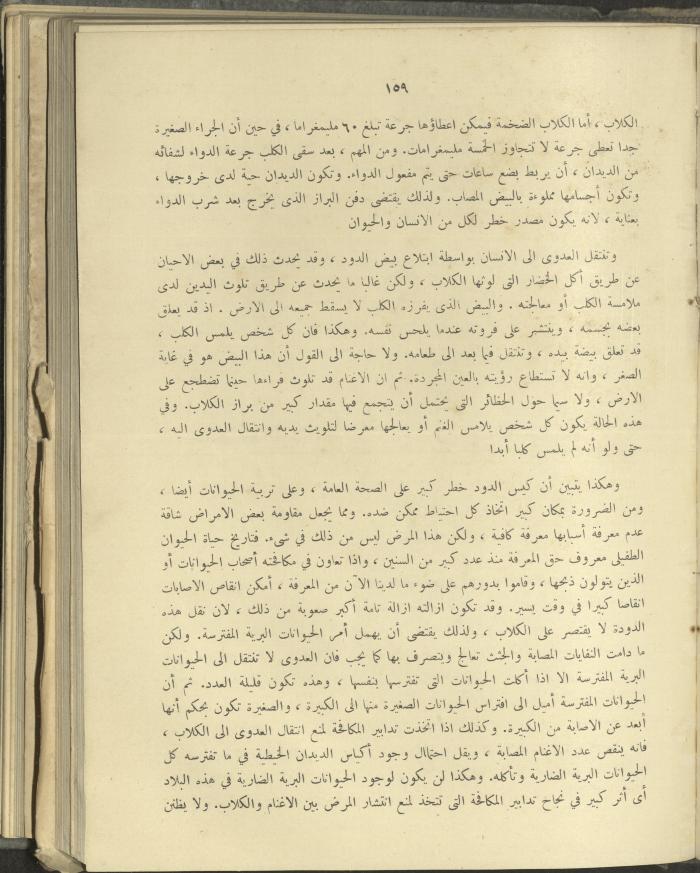 ١٥٩
الكلاب ، أما الكلاب الضخمة فيمكن اعطاؤها جرعة تبلغ ٦٠ مليمغراما ، في حين أن الجراء الصغيرة
جدا تعطى جرعة لا تتجاوز الخمسة مليمغرامات. ومن المهم ، بعد سقى الكلب جرعة الدواء لشفائه
من الديدان ، أن يربط بضع ساعات حتى يتم مفعول الدواء. وتكون الديدان حية لدى خروجها ،
وتكون أجسامها مملوءة بالبيض المصاب. ولذلك يقتضى دفن البراز الذى يخرج بعد شرب الدواء
بعناية ، لانه يكون مصدر خطر لكل من الانسان والحيوان
وتنتقل العدوى الى الانسان بواسطة ابتلاع بيض الدود ، وقد يحدث ذلك في بعض الاحيان
عن طريق أكل الخضار التى لوثها الكلاب ، ولكن غالبا ما يحدث عن طريق تلوث اليدين لدى
ملامسة الكلب أو معالجته . والبيض الذى يفرزه الكلب لا يسقط جميعه الى الارض . اذ قد يعلق
بعضه بجسمه ، وينتشر على فروته عندما يلحس نفسه. وهكذا فان كل شخص يلمس الكلب ،
قد تعلق بيضة بيده ، وتنتقل فيما بعد الى طعامه. ولا حاجة الى القول أن هذا البيض هو في غاية
الصغر ، وانه لا تستطاع رؤيته بالعين المجردة. ثم ان الاغنام قد تلوث فراءها حينما تضطجع على
الارض ، ولا سيما حول الحظائر التى يحتمل أن يتجمع فيها مقدار كبير من براز الكلاب. وفي
هذه الحالة يكون كل شخص يلامس الغنم أو يعالجها معرضا لتلويث يديه وانتقال العدوى اليه ،
حتى ولو أنه لم يلمس كلبا أبدا
وهكذا يتبين أن كيس الدود خطر كبير على الصحة العامة ، وعلى تربية الحيوانات أيضا ،
ومن الضرورة بمكان كبير اتخاذ كل احتياط ممكن ضده. ومما يجعل مقاومة بعض الامراض شاقة
عدم معرفة أسبابها معرفة كافية ، ولكن هذا المرض ليس من ذلك في شىء. فتاريخ حياة الحيوان
الطفيلى معروف حق المعرفة منذ عدد كبير من السنين ، واذا تعاون في مكافحته أصحاب الحيوانات أو
الذين يتولون ذبحها ، وقاموا بدورهم على ضوء ما لدينا الآن من المعرفة ، أمكن انقاص الاصابات
انقاصا كبيرا في وقت يسير. وقد تكون ازالته ازالة تامة أكبر صعوبة من ذلك ، لان نقل هذه
الدودة لا يقتصر على الكلاب ، ولذلك يقتضى أن يهمل أمر الحيوانات البرية المفترسة. ولكن
ما دامت النفايات المصابة والجثث تعالج ويتصرف بها كما يجب فان العدوى لا تنتقل الى الحيوانات
البرية المفترسة الا اذا أكلت الحيوانات التى تفترسها بنفسها ، وهذه تكون قليلة العدد. ثم أن
الحيوانات المفترسة أميل الى افتراس الحيوانات الصغيرة منها الى الكبيرة ، والصغيرة تكون بحكم أنها
أبعد عن الاصابة من الكبيرة. وكذلك اذا اتخذت تدابير المكافحة لمنع انتقال العدوى الى الكلاب ،
فانه ينقص عدد الاغنام المصابة ، ويقل احتمال وجود أكياس الديدان الخيطية في ما تفترسه كل
الحيوانات البرية الضارية وتأكله. وهكذا لن يكون لوجود الحيوانات البرية الضارية في هذه البلاد
أى أثر كبير في نجاح تدابير المكافحة التى تتخذ لمنع انتشار المرض بين الاغنام والكلاب. ولا يظنن